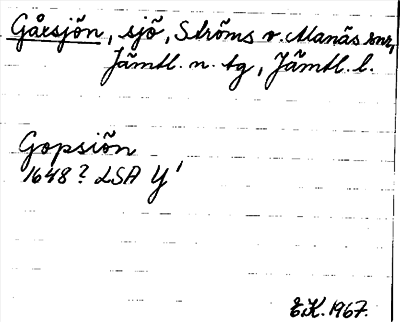 Gåxsjön, sjö, Ströms o. Alanäs snr,
Jämtl. n. tg, Jämtl. l.
Gopsiön
1648? LSA Y¹
E.K. 1967.